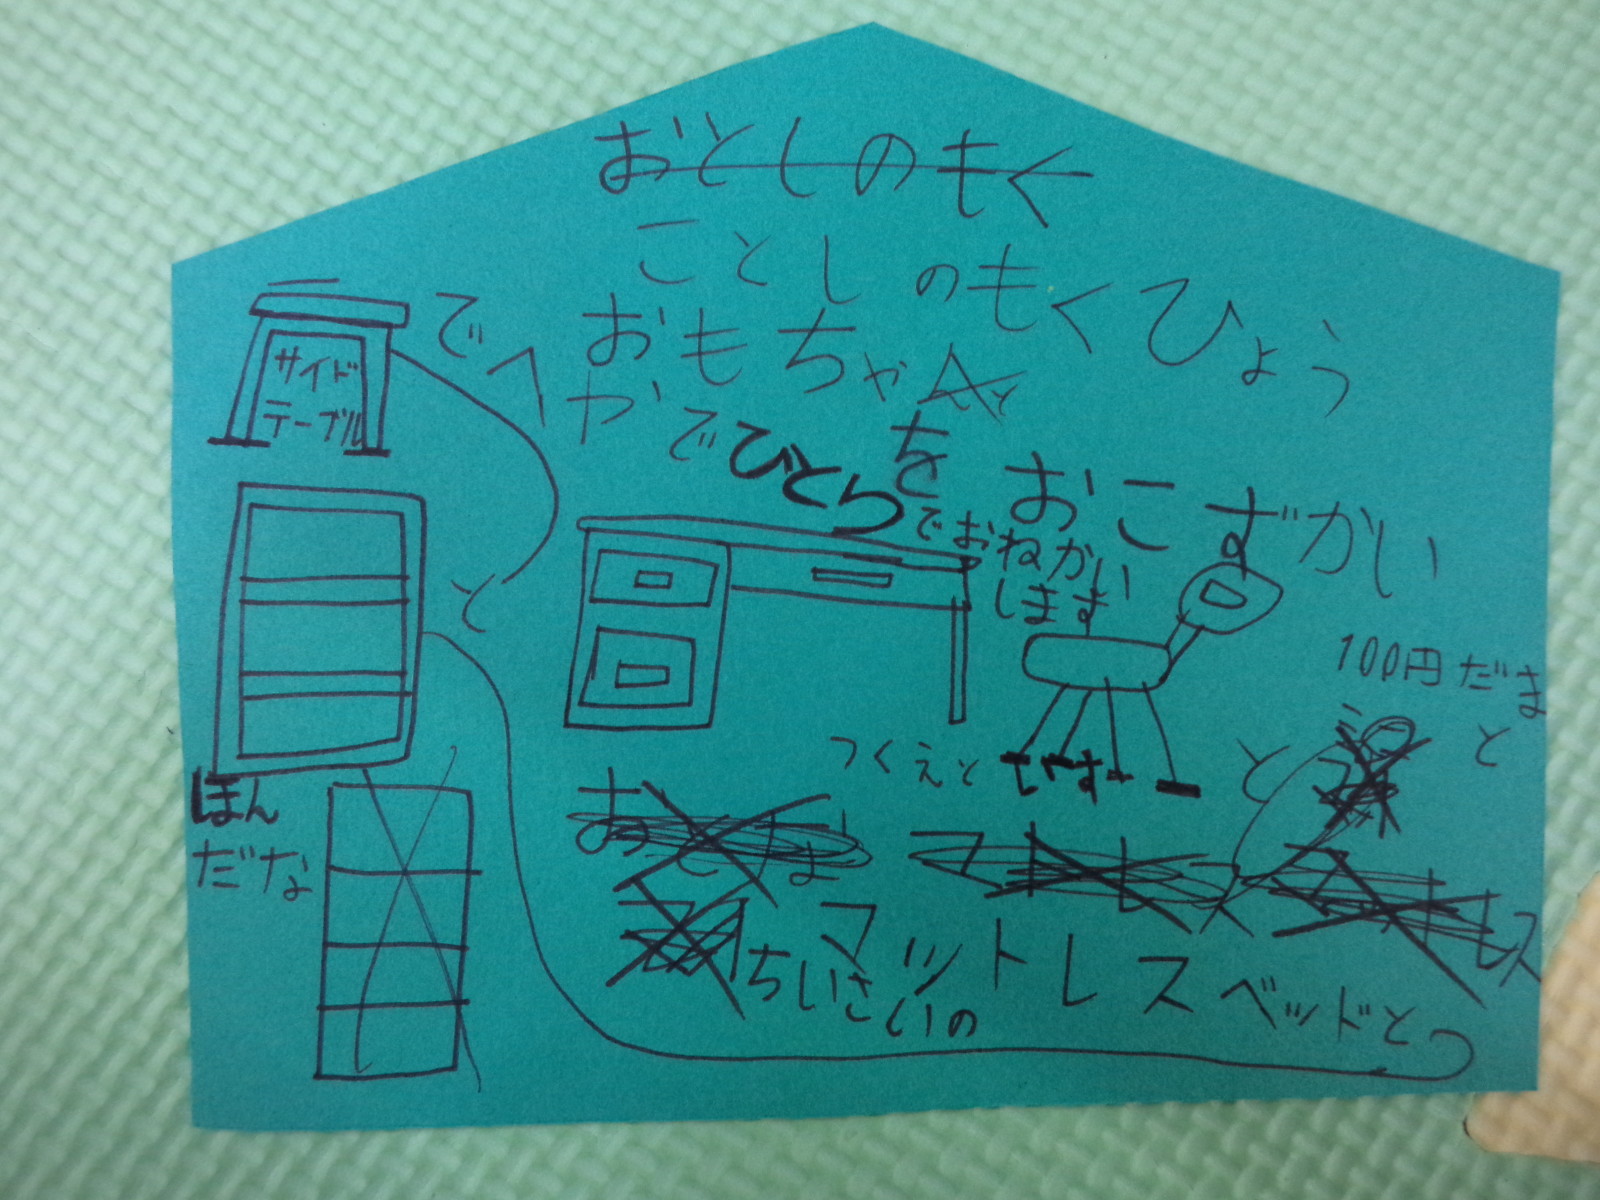 おとしのもく
ことしのもくひょう
おもちゃ
を
おこずかい
100円だま
と
と
つくえと
いす
ちいさいの
マットレスベッドと
と
ほん
だな
サイド
テーブル
でへ
やでひとら
でおねがい
します